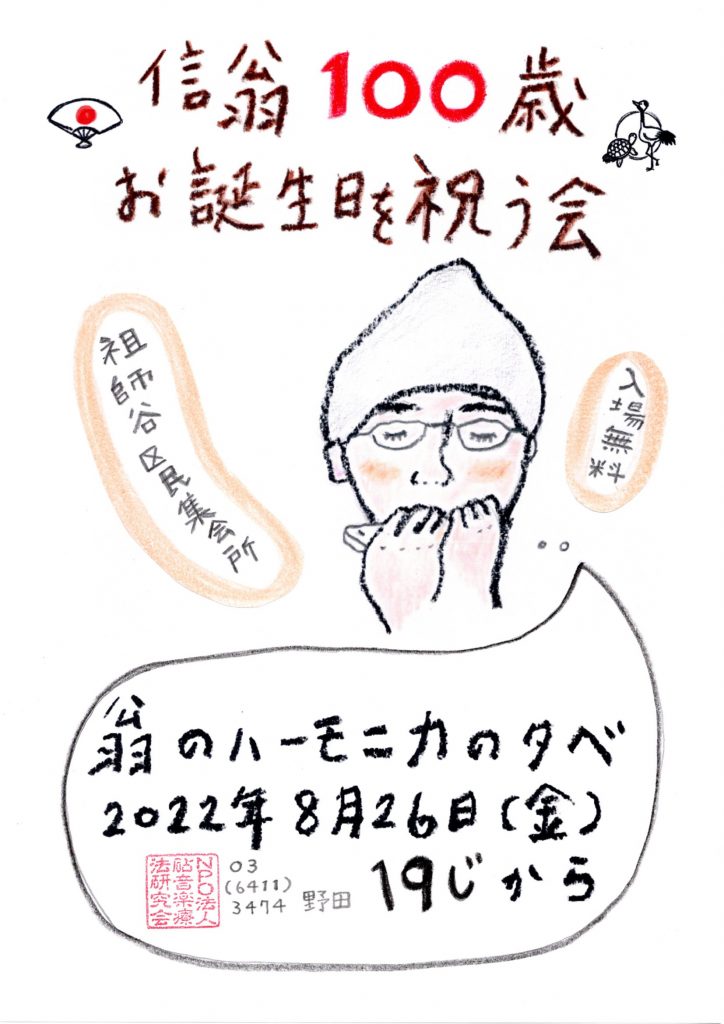 信翁100歳
お誕生日を祝う会
祖師谷区民集会所
入場無料
翁のハーモニカの夕べ
2022年8月26日(金)
19じから
NPO法人
砧音楽療
法研究会
03
(6411)
3474 野田